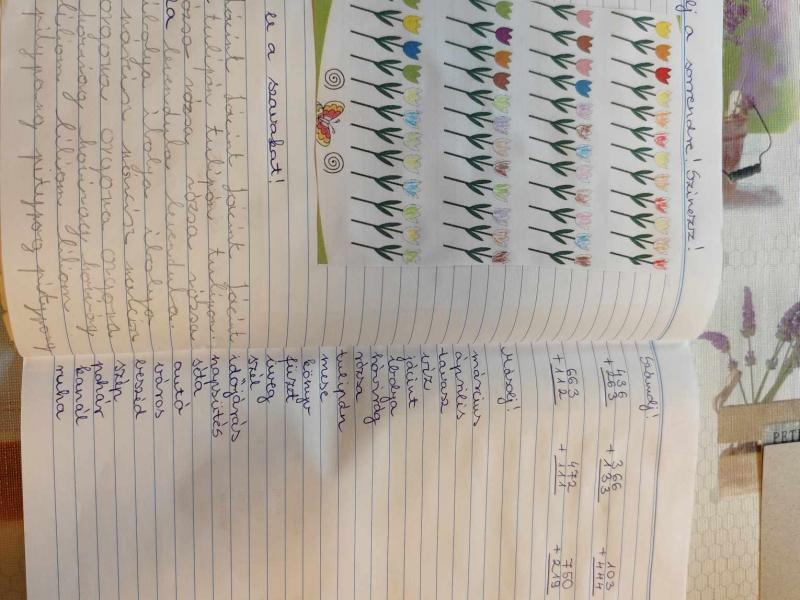 lj a sorrendre! Színezz!
a szavakat!
jácint jácint jácint jácint
tulipán tulipán tulipán
rózsa rózsa rózsa rózsa
la levendula levendula
ibolya ibolya ibolya
nárcisz nárcisz nárcisz
orgona orgona orgona
hóvirág hóvirág hóvirág
liliom liliom liliom
pitypang pitypang pitypang
Számolj!
436 366 103
+263 +133 +444
663 472 750
+112 +111 +219
Másolj!
március
április
tavasz
víz
jácint
ibolya
hóvirág
rózsa
tulipán
mese
könyv
füzet
üveg
szél
időjárás
napsütés
séta
autó
város
beszéd
szép
pohár
kanál
ruha